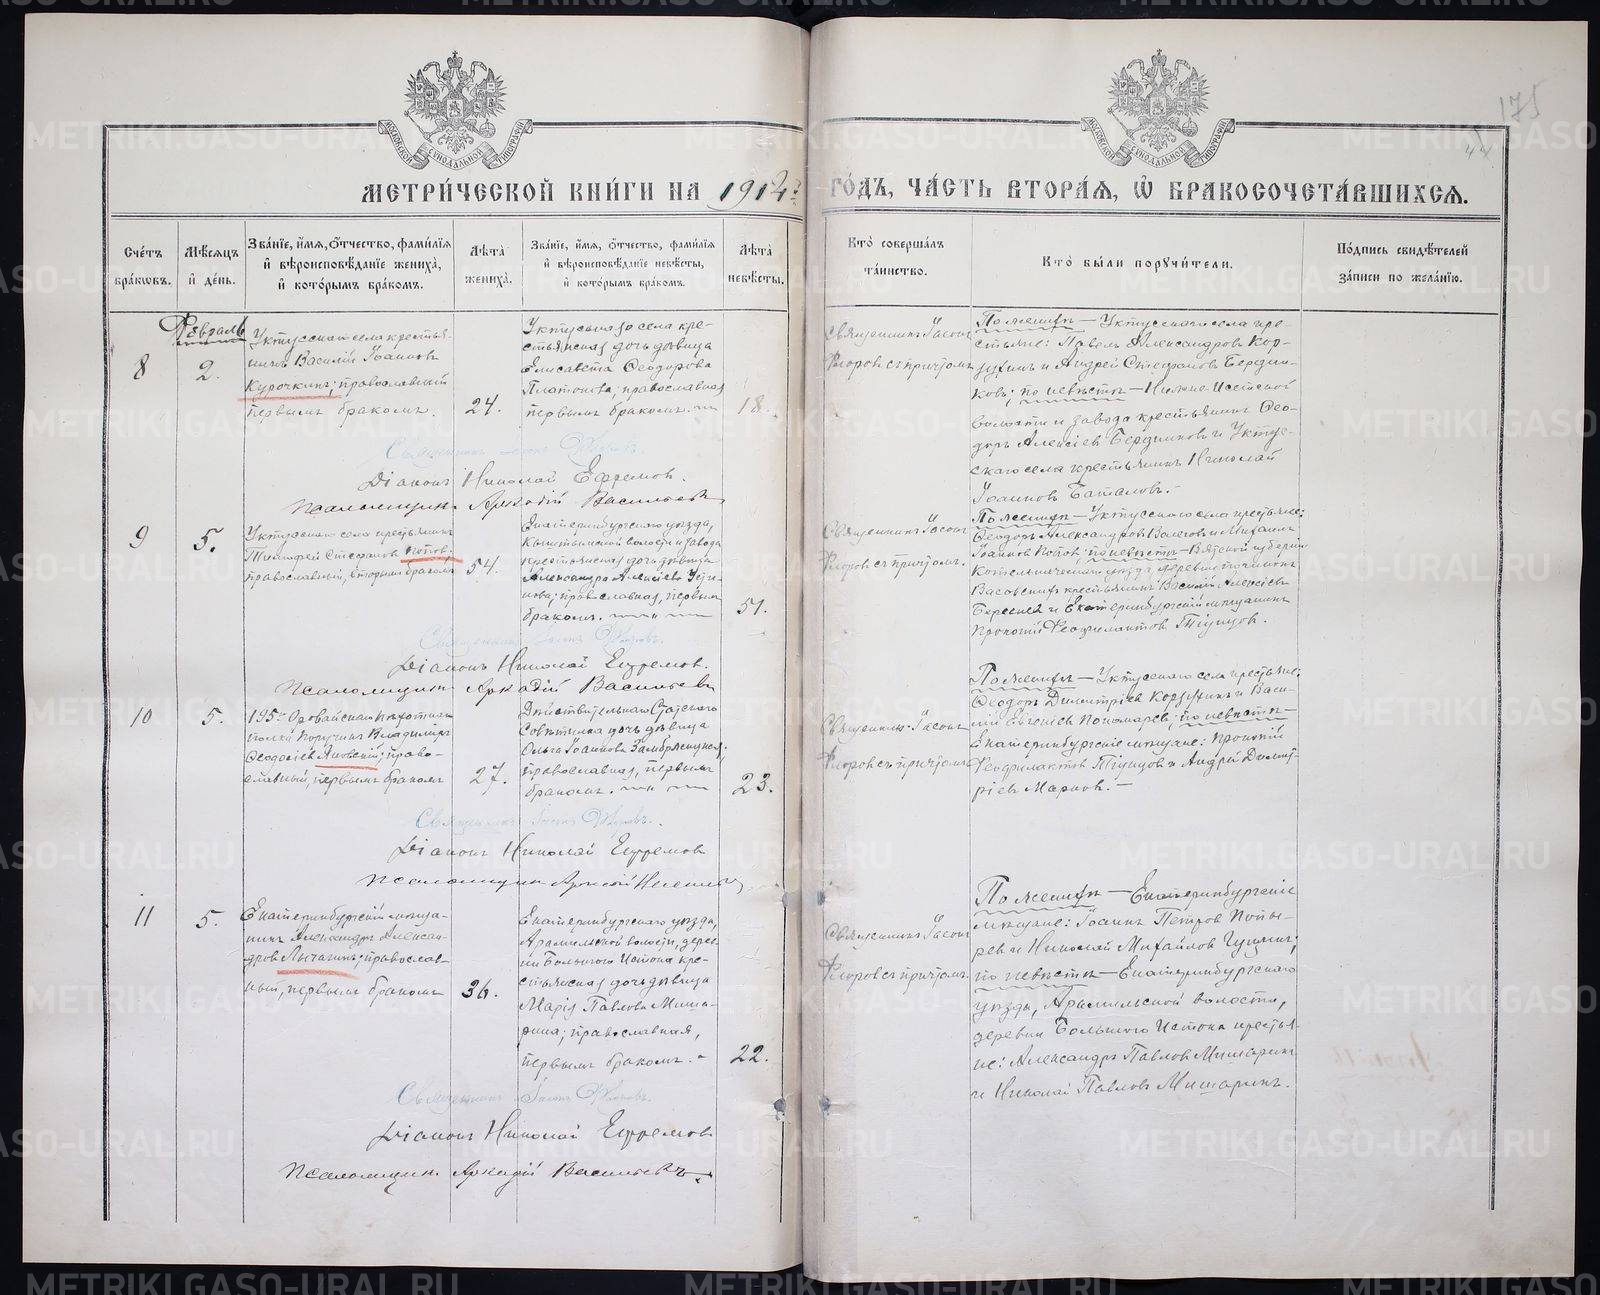 175
МОСКОВСКОЙ СѴНОДАЛЬНОЙ ТИПОГРАФІИ
МОСКОВСКОЙ СѴНОДАЛЬНОЙ ТИПОГРАФІИ
МЕТРИ́ЧЕСКОЙ КНИ́ГИ НА 1912 ГО́ДЪ, ЧА́СТЬ ВТОРА́Я, Ѡ҆ БРАКОСОЧЕТА́ВШИХСЯ.
Сче́тъ бра́ковъ.
Мѣ́сяцъ и҆ де́нь.
Зва́нїе, и҆́мя, ѻ҆́тчество, фами́лїя и҆ вѣроисповѣ́данїе жениха̀, и҆ кото́рымъ бра́комъ.
Лѣ́та жениха̀.
Зва́нїе, и҆́мя, ѻ҆́тчество, фами́лїя и҆ вѣроисповѣ́данїе невѣ́сты, и҆ кото́рымъ бра́комъ.
Лѣ́та невѣ́сты.
Кто̀ соверша́лъ та́инство.
Кто̀ бы́ли порꙋчи́тели.
По́дпись свидѣ́телей за́писи по жела́нїю.
Февраль
8
2.
Уктусскаго села крестья-
нинъ Василій Іоанновъ
Курочкинъ; православный
первымъ бракомъ.
24.
Уктусскаго села кре-
стьянская дочь дѣвица
Елисавета Ѳеодорова
Платонова, православная
первымъ бракомъ.
18.
Священникъ Іасонъ
Флоровъ съ причтомъ
По женихѣ — Уктусскаго села кре-
стьяне: Павелъ Александровъ Кор-
зухинъ и Андрей Стефановъ Бердни-
ковъ; по невѣстѣ — Нижне-Исетской
волости и завода крестьянинъ Ѳео-
доръ Алексіевъ Бердниковъ и Уктус-
скаго села крестьянинъ Николай
Іоанновъ Баталовъ. —
Священникъ Іасонъ Флоровъ.
Діаконъ Николай Ефремовъ.
Псаломщикъ Аркадій Васильевъ
9
5.
Уктусскаго села крестьянинъ
Тимофей Стефановъ Поповъ;
православный, вторымъ бракомъ
54.
Екатеринбургскаго уѣзда,
Кыштымской волости и завода
крестьянская дочь дѣвица
Александра Алексіева Усти-
нова; православная, первымъ
бракомъ.
51.
Священникъ Іасонъ
Флоровъ съ причтомъ.
По женихѣ — Уктусскаго села крестьяне:
Ѳеодоръ Александровъ и Михаилъ
Іоанновъ Поповъ; по невѣстѣ — Вятской губерніи
Котельническаго уѣзда деревни
крестьянинъ Василій Алексіевъ
и Екатеринбургскій мѣщанинъ
Прокопій Ѳеофилактовъ
Священникъ Іасонъ Флоровъ.
Діаконъ Николай Ефремовъ.
Псаломщикъ Аркадій Васильевъ
10
5.
195го Оровайскаго пѣхотнаго
полка поручикъ Владиміръ
Ѳеодосіевъ Яновскій; право-
славный, первымъ бракомъ
27.
Дѣйствительнаго Статскаго
Совѣтника дочь дѣвица
Ольга Іоаннова
православная, первымъ
бракомъ.
23.
Священникъ Іасонъ
Флоровъ съ причтомъ
По женихѣ — Уктусскаго села крестьяне:
Ѳеодоръ Димитріевъ Корзухинъ и Васи-
лій Евгеніевъ Пономаревъ; по невѣстѣ —
Екатеринбургскіе мѣщане: Прокопій
Ѳеофилактовъ и Андрей Димит-
ріевъ —
Священникъ Іасонъ Флоровъ.
Діаконъ Николай Ефремовъ
Псаломщикъ Аркадій
11
5.
Екатеринбургскій мѣща-
нинъ Александръ Алексан-
дровъ Лычагинъ; православ-
ный, первымъ бракомъ
36.
Екатеринбургскаго уѣзда,
Арамильской волости, дерев-
ни Большого Истока кре-
стьянская дочь дѣвица
Марія Павлова Миша-
рина; православная,
первымъ бракомъ. —
22.
Священникъ Іасонъ
Флоровъ съ причтомъ.
По женихѣ — Екатеринбургскіе
мѣщане: Іоаннъ Петровъ Попы-
ревъ и Николай Михайловъ Гущинъ;
по невѣстѣ — Екатеринбургскаго
уѣзда, Арамильской волости,
деревни Большого Истока крестья-
не: Александръ Павловъ Мишаринъ
и Николай Павловъ Мишаринъ.
Священникъ Іасонъ Флоровъ.
Діаконъ Николай Ефремовъ
Псаломщикъ Аркадій Васильевъ
METRIKI.GASO-URAL.RU